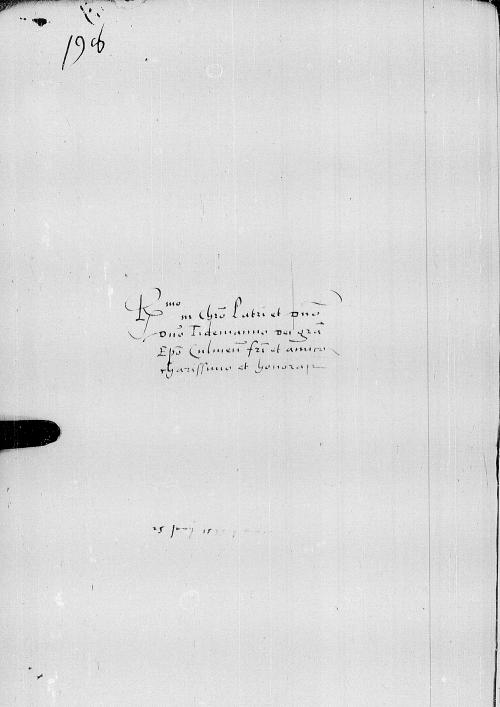 196
R mo in Chro Patri et Dno
Dno Tidemanno Dei gra
Epo Culmen fri et amico
charissimo et honoran
25 15